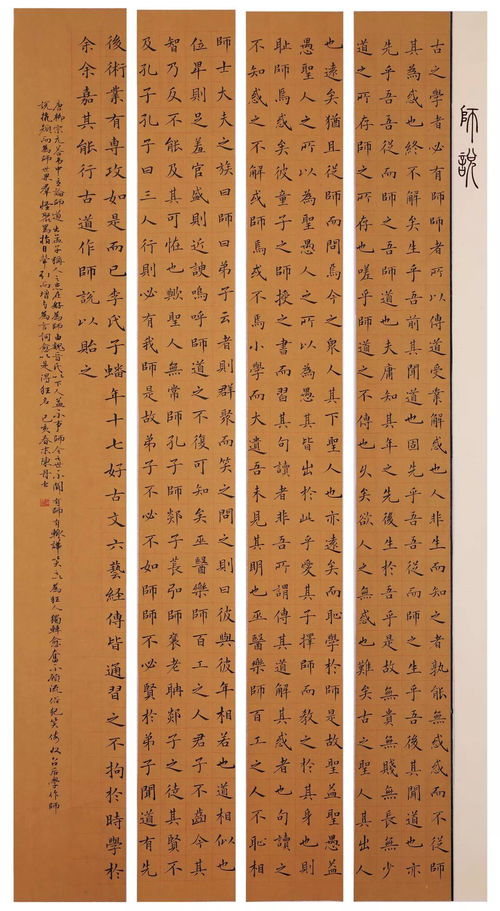 師說
古之學者必有師師者所以傳道受業解惑也人非生而知之者孰能無惑惑而不從師
其為惑也終不解矣生乎吾前其聞道也固先乎吾吾從而師之生乎吾後其聞道也亦
先乎吾吾從而師之吾師道也夫庸知其年之先後生於吾乎是故無貴無賤無長無少
道之所存師之所存也嗟乎師道之不傳也久矣欲人之無惑也難矣古之聖人其出人
也遠矣猶且從師而問焉今之衆人其下聖人也亦遠矣而恥學於師是故聖益聖愚益
愚聖人之所以為聖愚人之所以為愚其皆出於此乎愛其子擇師而教之於其身也則
恥師焉惑矣彼童子之師授之書而習其句讀者非吾所謂傳其道解其惑者也句讀之
不知惑之不解或師焉或不焉小學而大遺吾未見其明也巫醫樂師百工之人不恥相
師士大夫之族曰師曰弟子云者則群聚而笑之問之則曰彼與彼年相若也道相似也
位卑則足羞官盛則近諛嗚呼師道之不復可知矣巫醫樂師百工之人君子不齒今其
智乃反不能及其可怪也歟聖人無常師孔子師郯子萇弘師襄老聃郯子之徒其賢不
及孔子孔子曰三人行則必有我師是故弟子不必不如師師不必賢於弟子聞道有先
後術業有專攻如是而已李氏子蟠年十七好古文六藝經傳皆通習之不拘於時學於
余余嘉其能行古道作師說以貽之
唐柳宗元答韋中立論師道書孟子稱人之患在好為師由魏晉氏以下人益不事師今之世不聞有師有輒譁笑之以為狂人獨韓愈奮不顧流俗犯笑侮收召后學作師
說抗顏而為師世果羣怪聚罵指目牽引而增與為言詞愈以是得狂名 己亥春末陳丹